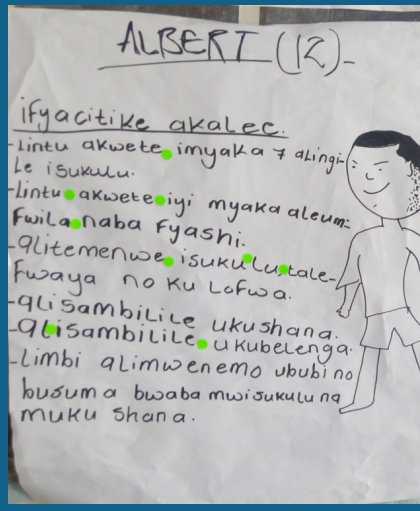 ALBERT (12)-
ifyacitike akalec.
-Lintu akwete imyaka 7 alingi-
Le isukulu.
-Lintu akwete iyi myaka aleum-
Fwila naba Fyashi.
-alitemenwe isukulu, tale-
Fwaya no ku Lofwa.
-alisambilile ukushana.
-alisambilile ukubelenga.
-Limbi alimwenemo ububi no
busuma bwaba mwisukulu na
muku shana.